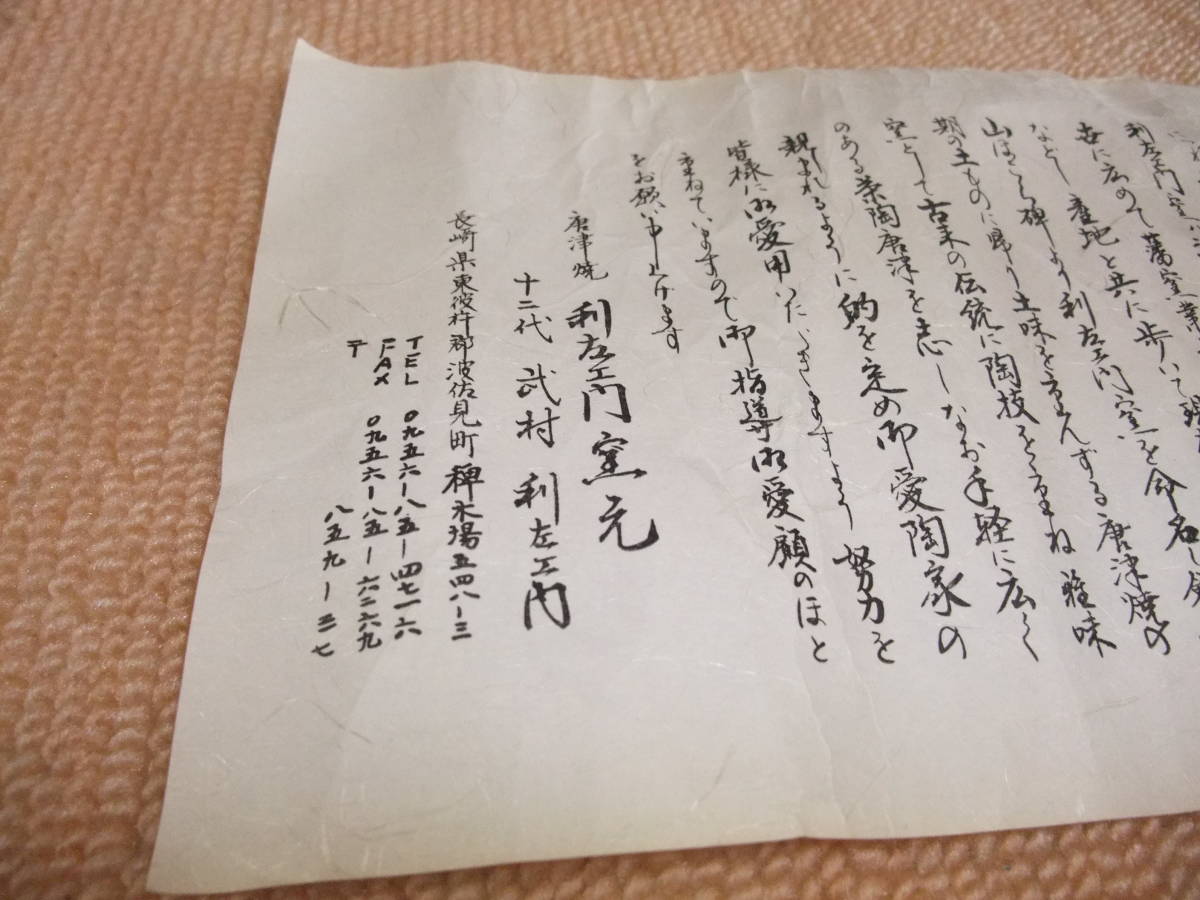 利左エ門窯
世に広めて藩窯
など産地と共に歩いて
山ほとり稗より利左エ門窯を命名し
期の土ものに帰り土味を重んずる唐津焼の
窯として古来の伝統に陶技を重ね雅味
のある茶陶唐津を志しなお手軽に広く
親しまれるように的を定め御愛陶家の
皆様に御愛用いただきますよう努力を
重ねていますので御指導御愛顧のほと
をお願い申し上げます
唐津焼 利左エ門窯元
十二代 武村 利左エ門
長崎県東彼杵郡波佐見町稗木場五四八ー三
TEL 〇九五六ー八五ー四七一六
FAX 〇九五六ー八五ー六二六九
〒 八五九ー三七